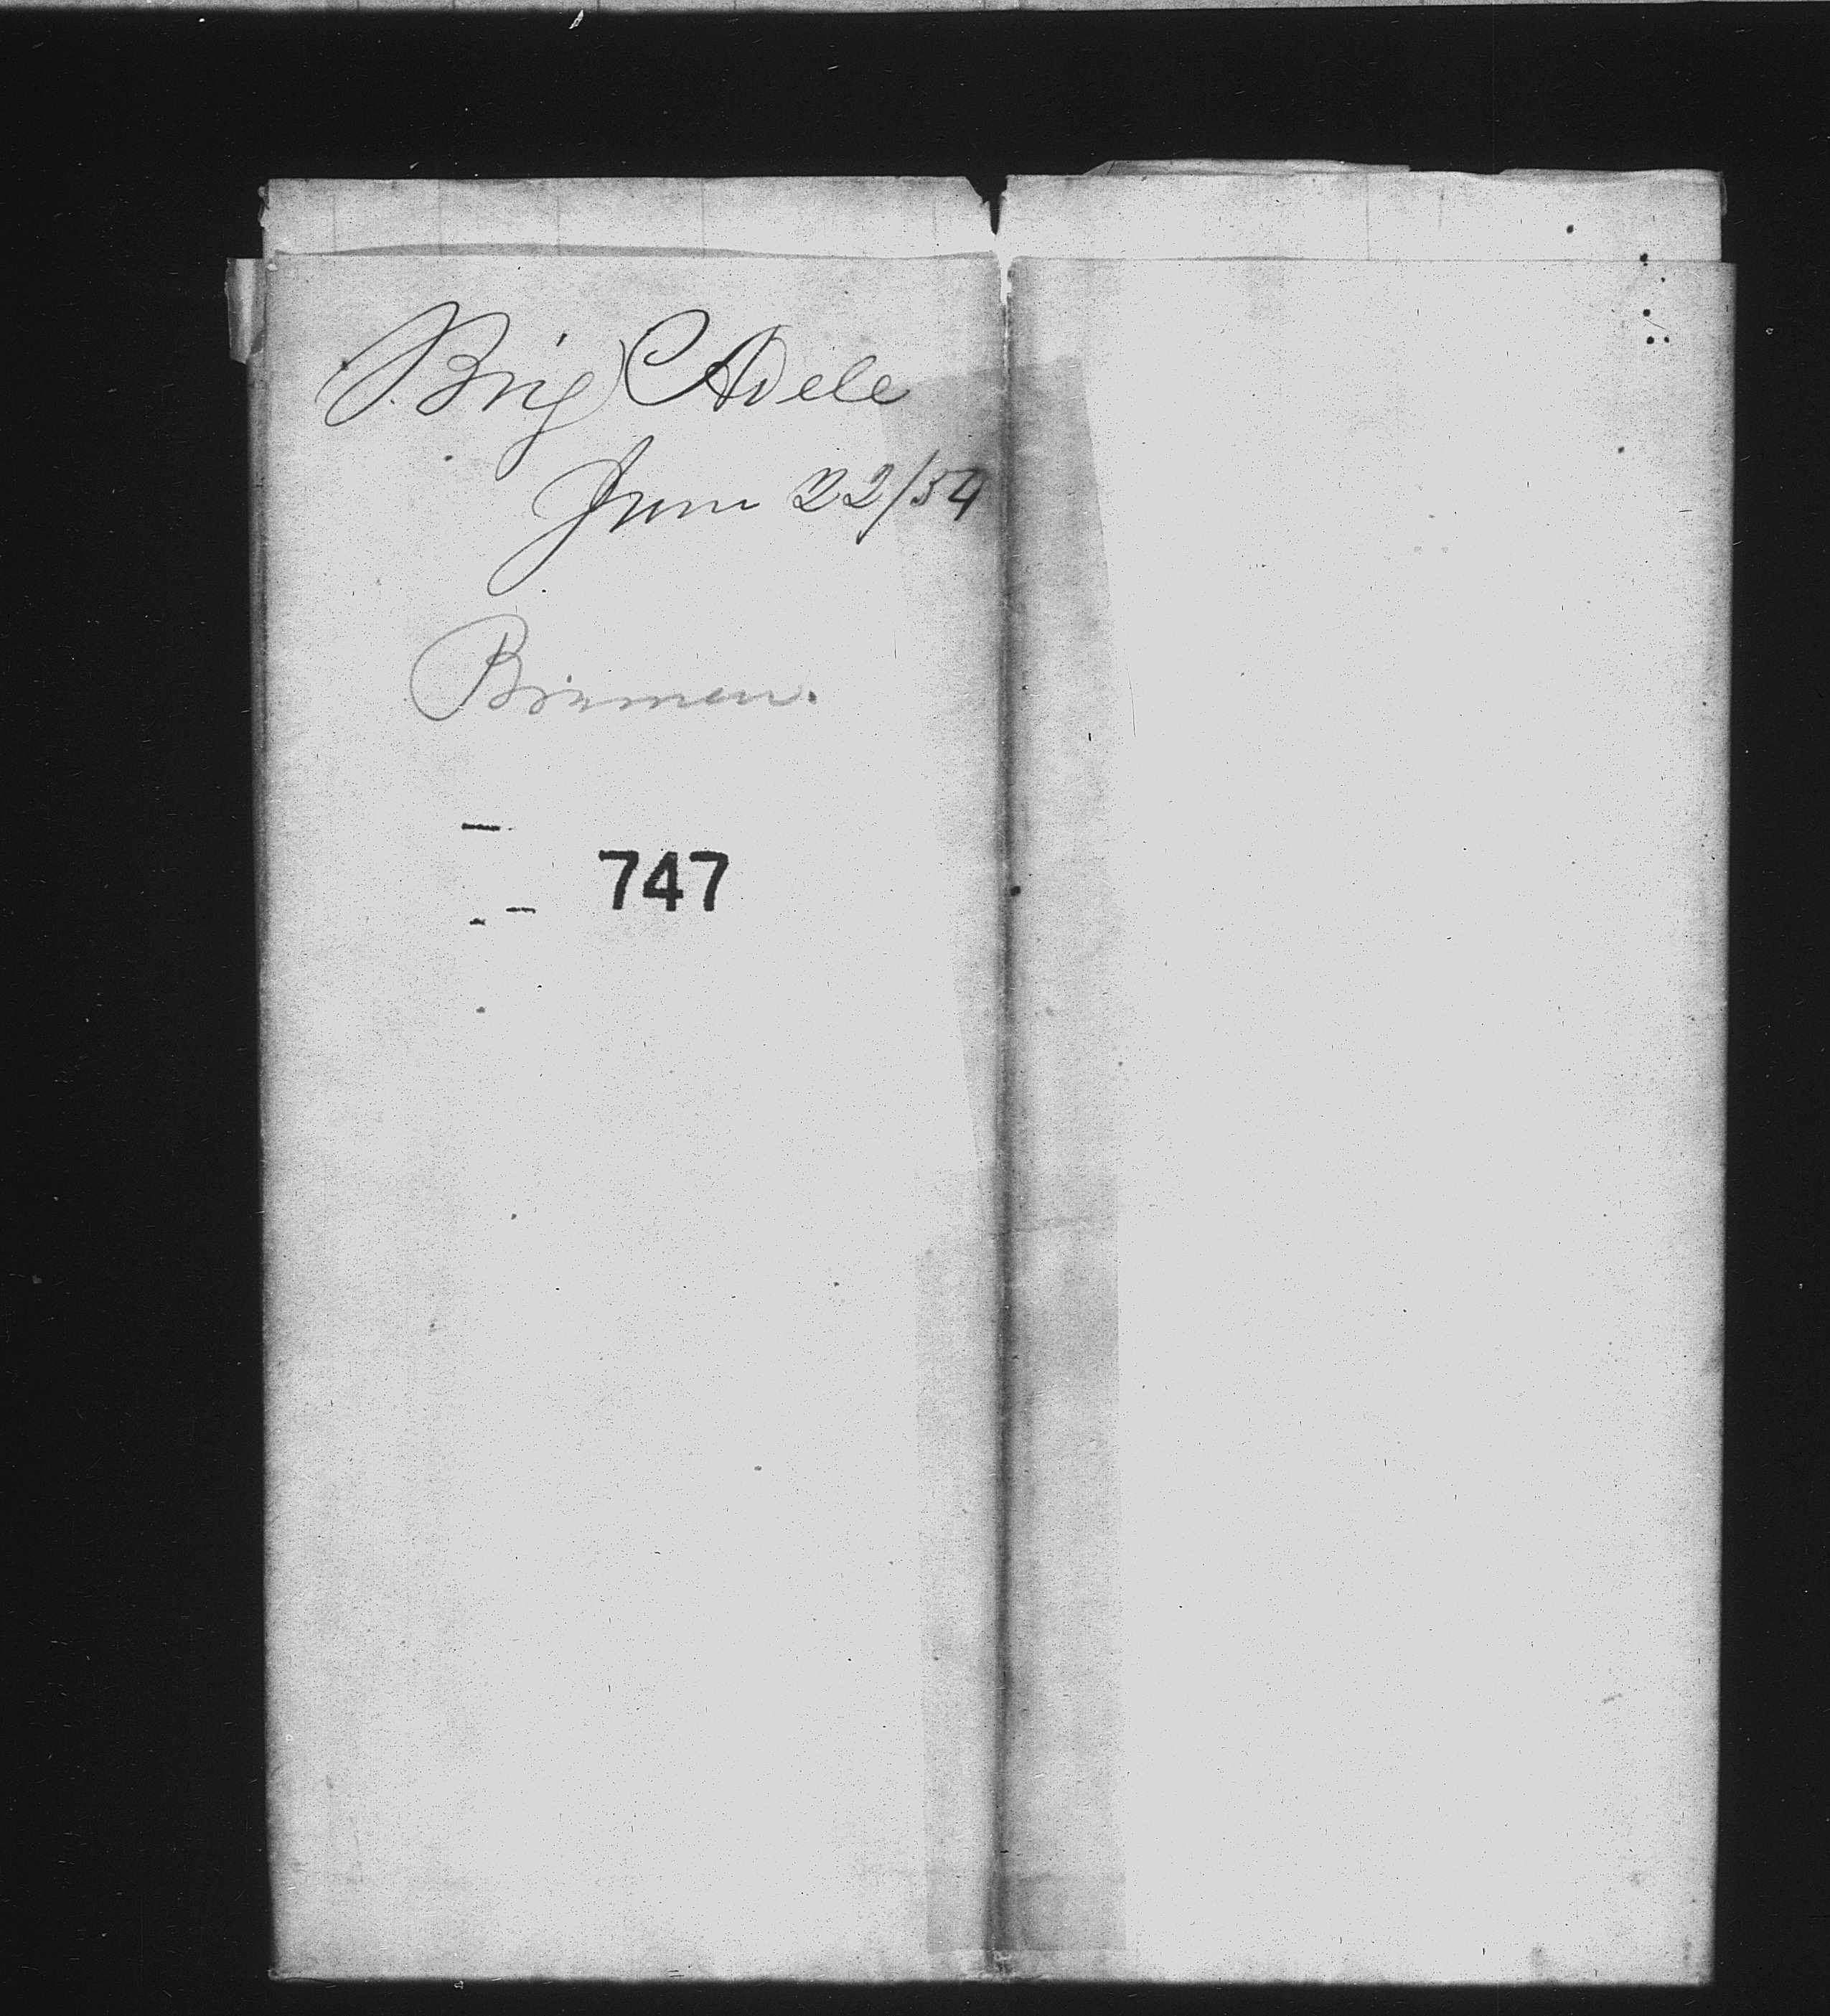 Brig Adele
June 22/54
Bremen.
747